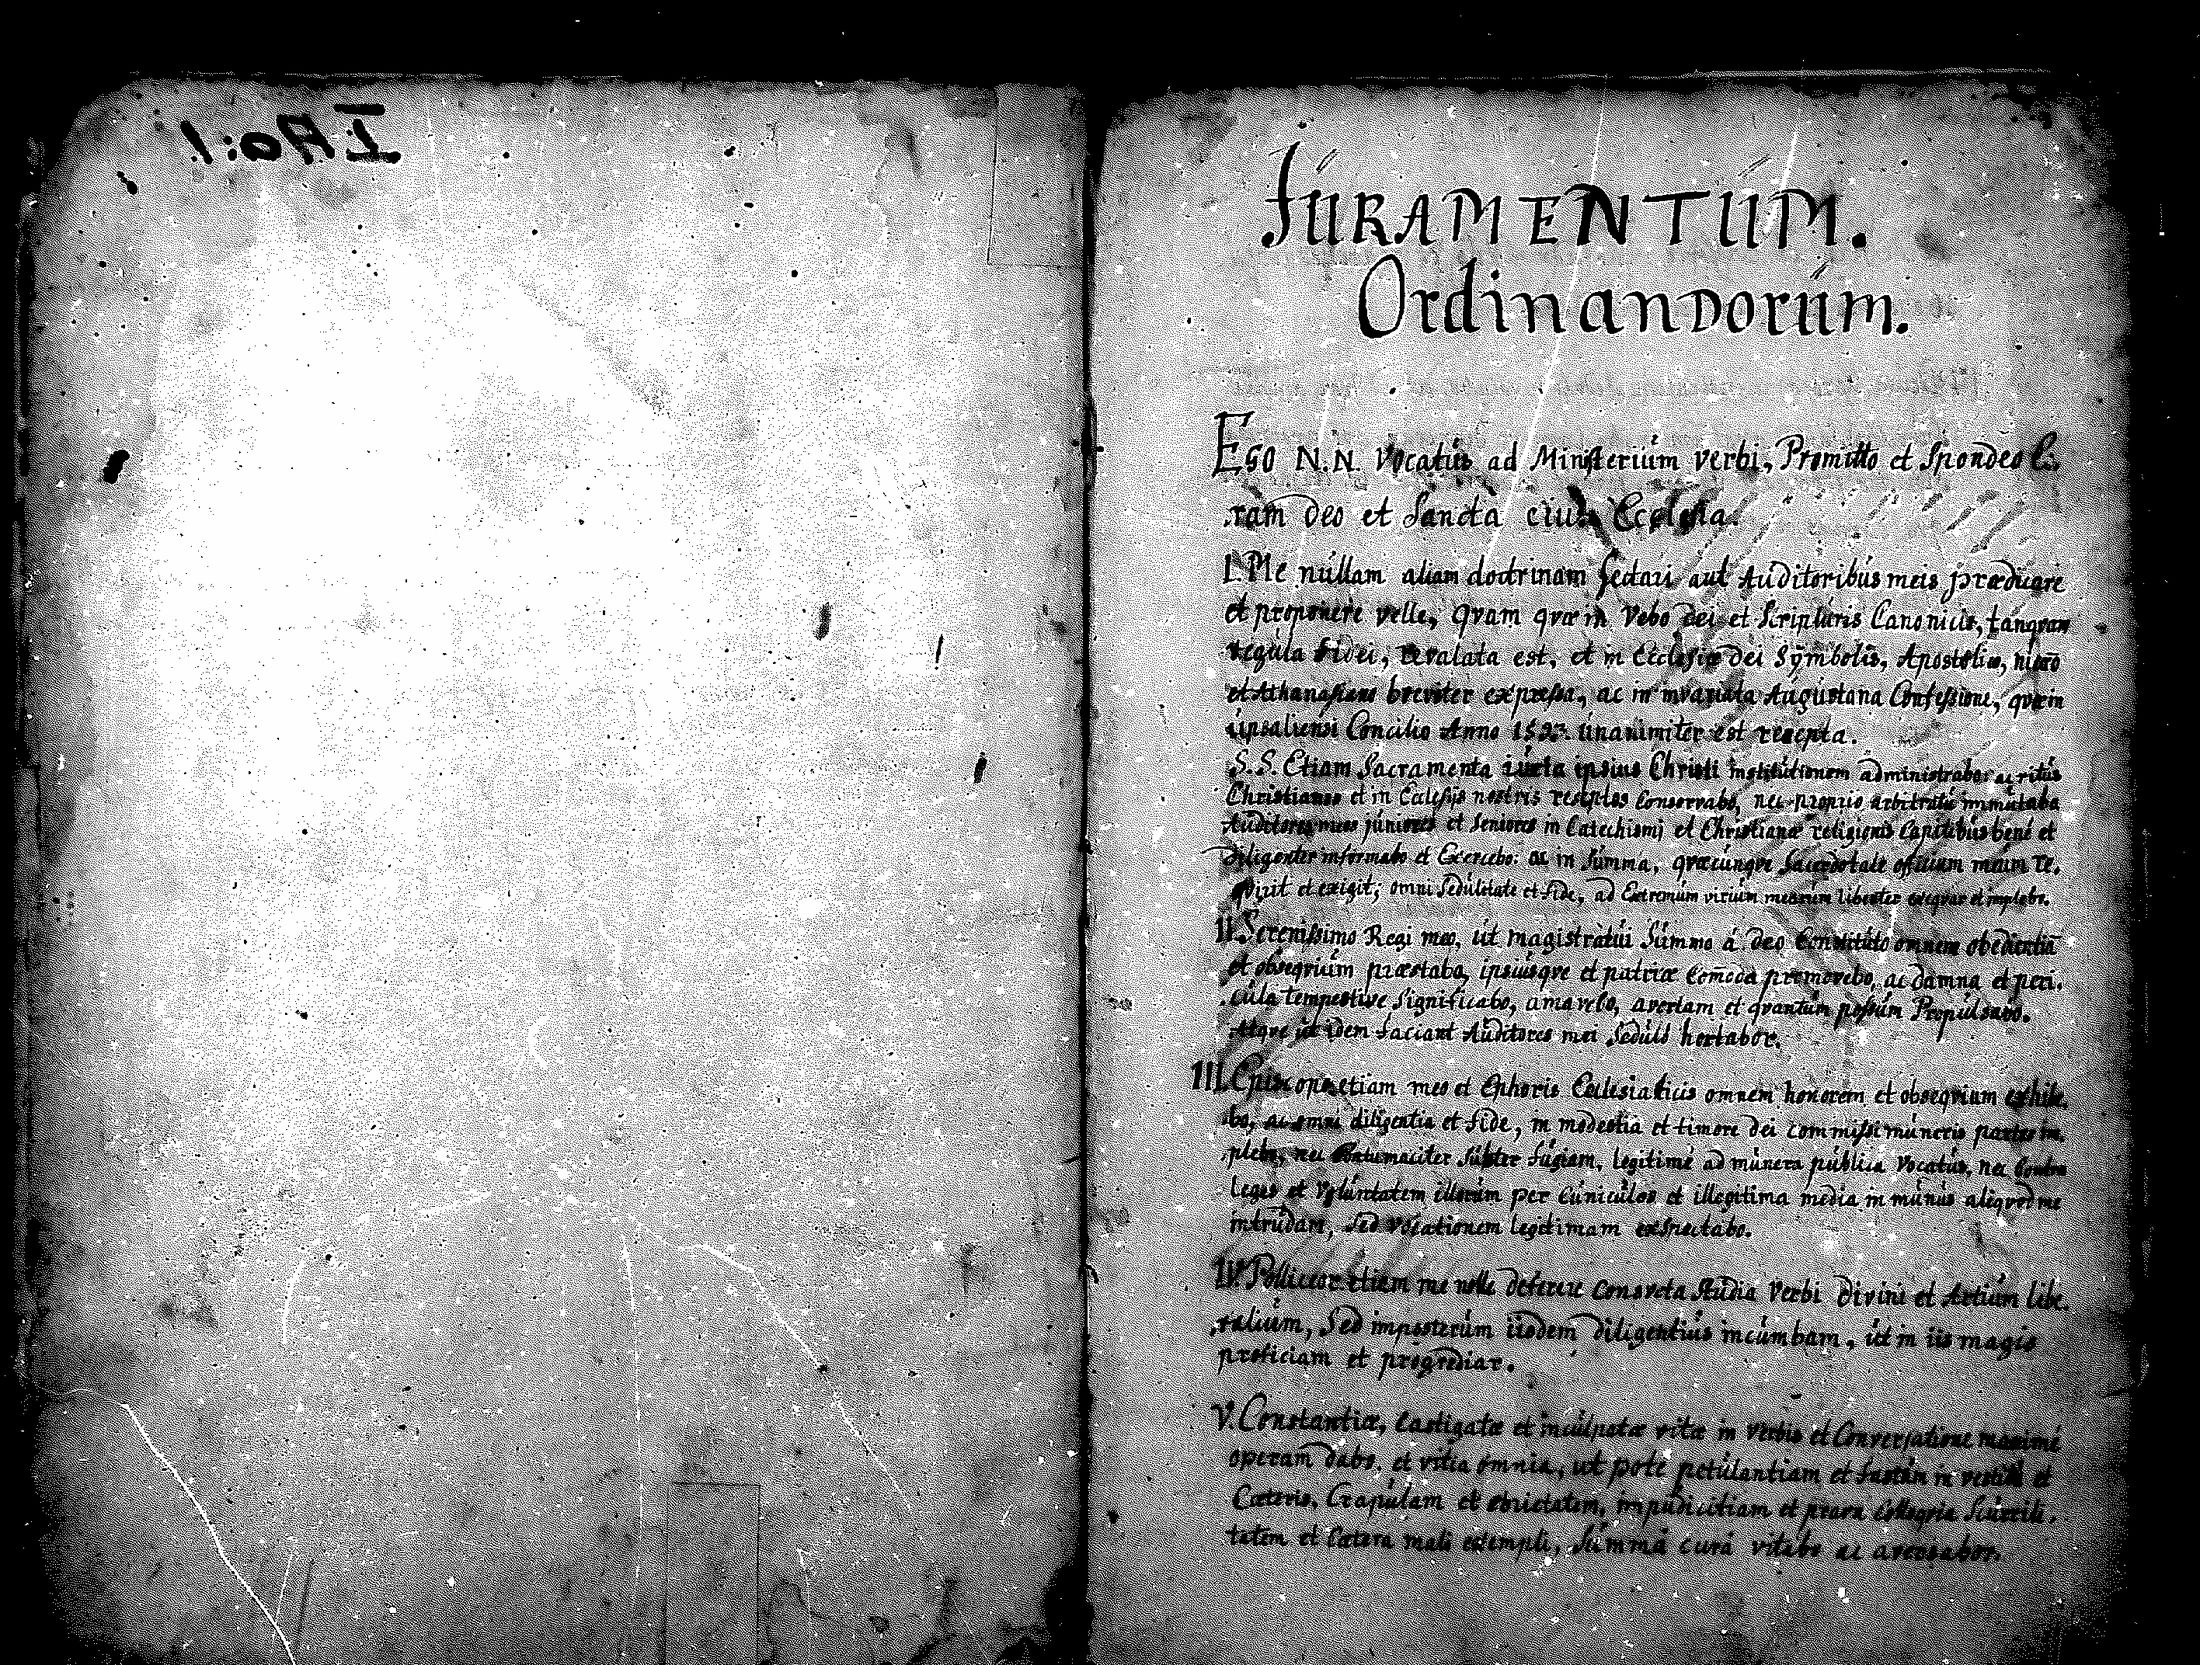 I Aa:1
JURAMENTUM.
Ordinandorum.
Ego N.N. Vocatus ad Ministerium verbi, Promitto et Spondeo Co-
ram deo et Sancta eius Ecclesia.
I. Me nullam aliam doctrinam Sectari aut Auditoribus meis prædicare
et proponere velle, quam quæ in Vebo dei et Scripturis Canonicis, tanquam
regula Fidei, revalata est, et in Ecclesiæ dei Symbolis, Apostolico, nicæo
et Athanasiano breviter expressa, ac in invariata Augustana Confessione, quæ in
upsaliensi Concilio Anno unanimiter est recepta.
S.S. Etiam Sacramenta iuxta ipsius Christi institutionem administrabo: ac ritus
Christianos et in Ecclesijs nostris receptos Conservabo, nec proprio arbitratu immutabo
Auditores meos juniores et Seniores in Catechismi et Christianæ religionis Capitibus bené et
diligenter informabo et Exercebo: ac in Summa, quæcunque Sacerdotale officium meum re-
quirit et exigit; omni Sedulitate et Fide, ad Extremum virium mearum libenter exequar et implebo.
II. Serenissimo Regi meo, ut magistratui Summo á deo Constituto omnem obedientiā
et obseqvium præstabo, ipsiusqve et patriæ Com̄oda promovebo, ac damna et peri-
cula tempestive Significabo, amavebo, avertam et quantum possum Propulsabo.
Atqve ut idem faciant Auditores mei Seduló hortabor.
III. Episcopo etiam meo et Ephoris Ecclesiasticis omnem honorem et obseqvium exhibe-
bo, ac omni diligentia et Fide, in modestia et timore dei commissi muneris partes im-
plebo, nec Contumaciter Subter fugiam, legitimé ad munera publica Vocatus, nec Contra
leges et Voluntatem illorum per Cuniculos et illegitima media in munus aliqvod me
intrudam, Sed Vocationem legitimam exspectabo.
IV. Polliceor etiam me nolle deserere Consveta Studia Verbi divini et Artium libe-
ralium, Sed imposterum iisdem diligentius incumbam, ut in iis magis
proficiam et progrediar.
V. Constantiæ, Castigatæ et inculpatæ vitæ in Verbis et Conversatione maximé
operam dabo, et vitia omnia, ut pote petulantiam et fastum in vestitu et
Cæteris, Crapulam et ebrietatem, impudicitiam et prava Colloqvia Scurrili-
tatem et Cætera mali exempli, Summá curá vitabo ac aversabor.